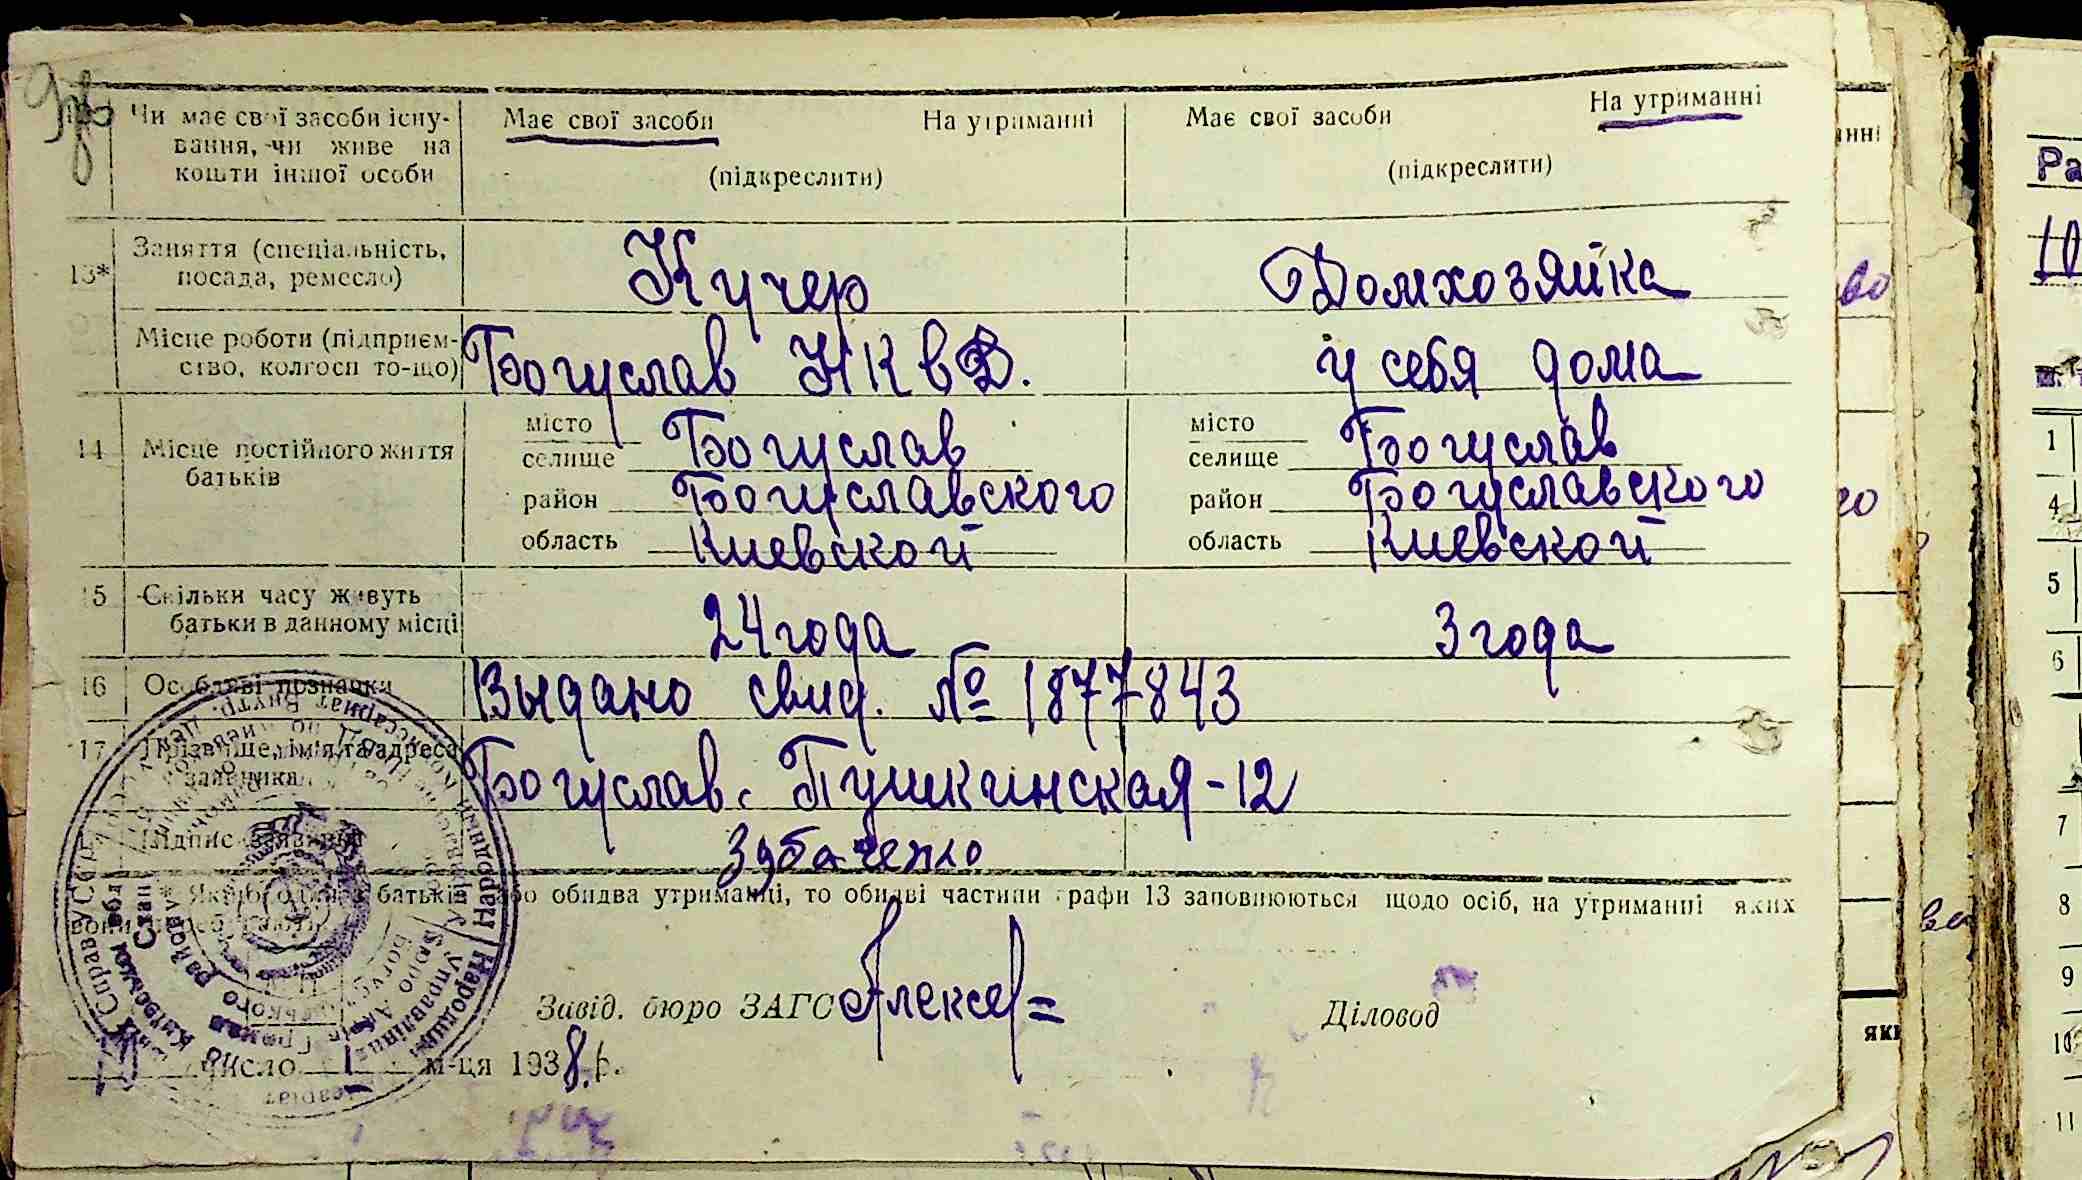 9 зв
Чи має свої засоби існу-
вання, чи живе на
кошти іншої особи
Має свої засоби На утриманні
(підкреслити)
Має свої засоби На утриманні
(підкреслити)
13* Заняття (спеціальність,
посада, ремесло)
Кучер
Домхозяйка
Місце роботи (підприєм-
ство, колгосп то-що)
Богуслав НКвД.
у себя дома
14 Місце постійного життя
батьків
місто
селище Богуслав
район Богуславского
область Киевской
місто
селище Богуслав
район Богуславского
область Киевской
15 Скільки часу живуть
батьки в данному місці
24 года
3 года
16 Особливі позначки
Выдано свид. № 1877843
17 Прізвище, ім'я та адреса
заявника
Богуслав. Пушкинская-12
Підпис заявника
* Якщо один з батьків або обидва утриманці, то обидві частини графи 13 заповнюються щодо осіб, на утриманні яких
вони перебувають.
Завід. бюро ЗАГС Діловод
число 1 м-ця 1938 р.
Ра
10
1
4
5
6
7
8
9
10
11